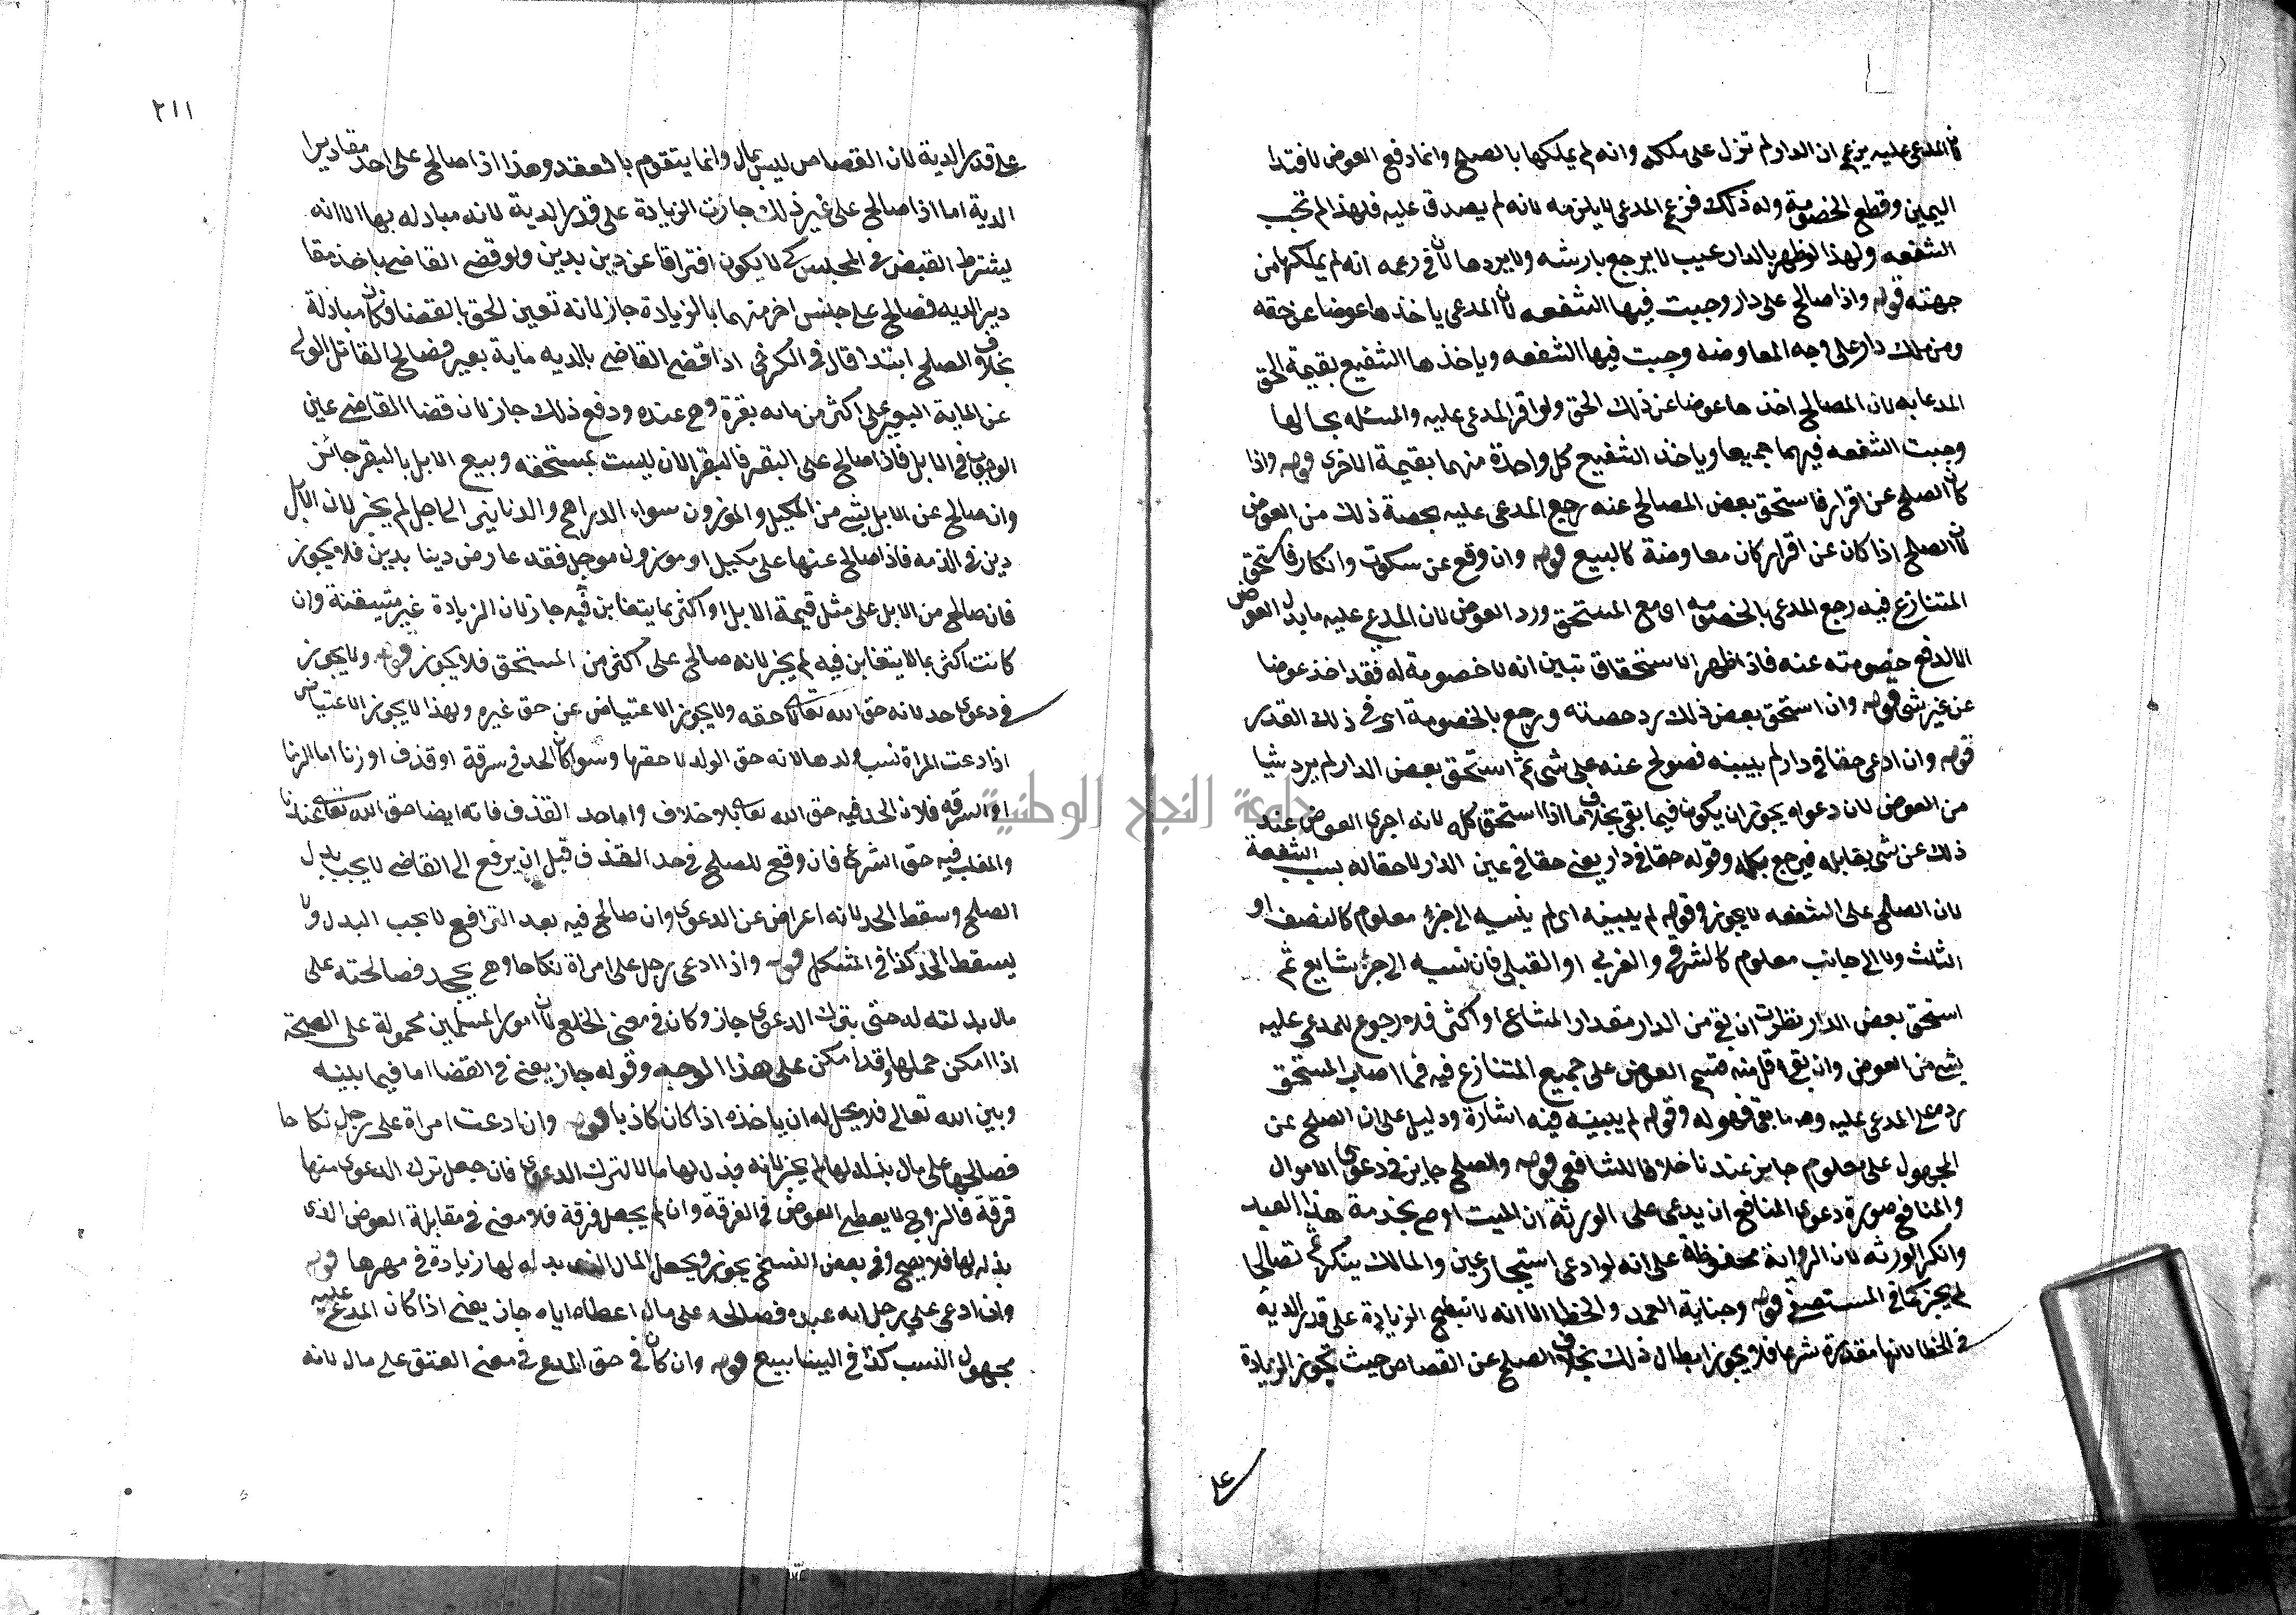 لان المدعى عليه يزعم ان الدار لم تزل على ملكه وانه لم يملكها بالصلح وانما دفع العوض لافتدا
اليمين وقطع الخصومة وله ذلك فزعم المدعى لا يلزمه لانه لم يصدق عليه فلهذا لم تجب
الشفعه ولهذا لو ظهر بالدار عيب لا يرجع بارشه ولا يردها لان في زعمه انه لم يملكها من
جهته قوله واذا صالح على دار وجبت فيها الشفعه لان المدعى ياخذها عوضا عن حقه
ومن ملك دار على وجه المعاوضه وجبت فيها الشفعه وياخذها الشفيع بقيمة الحق
المدعا به لان المصالح اخذها عوضا عن ذلك الحق ولو اقر المدعى عليه والمسئله بحالها
وجبت الشفعه فيهما جميعا وياخذ الشفيع كل واحدة منهما بقيمة الاخرى قوله واذا
كان الصلح عن اقرار فاستحق بعض المصالح عنه رجع المدعى عليه بحصة ذلك من العوض
لان الصلح اذا كان عن اقرار كان معاوضة كالبيع قوله وان وقع عن سكوت وانكار فاستحق
المتنازع فيه رجع المدعى بالخصومه اى مع المستحق ورد العوض لان المدعى عليه ما بذل العوض
الا لدفع خصومته عنه فاذا ظهر الاستحقاق تبين انه لا خصومة له فقد اخذ عوضا
عن غير شى قوله وان استحق بعض ذلك رد حصته ورجع بالخصومة اى في ذلك القدر
قوله وان ادعى حقا في دار لم يبينه فصولح عنه على شى ثم استحق بعض الدار لم يرد شيا
من العوض لان دعواه يجوز ان يكون فيما بقى بخلاف ما اذا استحق كله لانه اجرى العوض عند
ذلك عن شى يقابله فيرجع بكله وقوله حقا في دار يعنى حقا في عين الدار لا حقا له بسبب الشفعة
لان الصلح على الشفعه لا يجوز وقوله لم يبينه اى لم ينسبه الى جزء معلوم كالنصف او
الثلث ولا الى جانب معلوم كالشرقي والغربي او القبلي فان نسبه الى جزء شايع ثم
استحق بعض الدار نظرت ان بقي من الدار مقدار المشاع او اكثر فلا رجوع للمدعى عليه
بشى من العوض وان بقى اقل منه قسم العوض على جميع المتنازع فيه فما اصاب المستحق
رد على المدعى عليه وما بقى فهو له وقوله لم يبينه فيه اشارة ودليل على ان الصلح عن
المجهول على معلوم جايز عندنا خلافا للشافعي قوله والصلح جايز في دعوى الاموال
والمنافع صورة دعوى المنافع ان يدعى على الورثة ان الميت اوصى بخدمة هذا العبد
وانكر الورثه لان الرواية محفوظة على انه لو ادعى استيجار عين والمالك ينكر ثم تصالحا
لم يجز كذا في المستصفى قوله وجناية العمد والخطا الا انه لا تصح الزيادة على قدر الدية
في الخطا لانها مقدرة شرعا فلا يجوز ابطال ذلك بخلاف الصلح عن القصاص حيث تجوز الزيادة
على
٢١١
على قدر الدية لان القصاص ليس بمال وانما يتقوم بالعقد وهذا اذا صالح على احد مقادير
الدية اما اذا صالح على غير ذلك جازت الزيادة على قدر الدية لانه مبادله بها الا انه
يشترط القبض في المجلس كي لا يكون افتراقا عن دين بدين ولو قضى القاضى باخذ مقا
دير الديه فصالح على جنس اخر منهما بالزيادة جاز لانه تعين الحق بالقضا فكان مبادلة
بخلاف الصلح ابتدا قال في الكرخي اذا قضى القاضي بالديه ماية بعير فصالح القاتل الولى
عن الماية البعير على اكثر من مايه بقرة وهى عنده ودفع ذلك جاز لان قضا القاضى عين
الوجوب في الابل فاذا صالح على البقر فالبقر الان ليست بمستحقه وبيع الابل بالبقر جائز
وان صالح عن الابل بشى من المكيل والموزون سوا الدراهم والدنانير الى اجل لم يجز لان الابل
دين في الذمه فاذا صالح عنها على مكيل او موزون موجل فقد عارض دينا بدين فلا يجوز
فان صالح من الابل على مثل قيمة الابل او اكثر بما يتغابن فيه جاز لان الزيادة غير متيقنة وان
كانت اكثر بما لا يتغابن فيه لم يجز لانه صالح على اكثر من المستحق فلا يجوز قوله ولا يجوز
في دعوى حد لانه حق الله تعالى لا حقه ولا يجوز الاعتياض عن حق غيره ولهذا لا يجوز الاعتياض
اذا ادعت المراة نسب ولدها لانه حق الولد لا حقها وسوا كان الحد في سرقة او قذف او زنا اما الزنا
او السرقه فلان الحد فيه حق الله تعالى بلا خلاف واما حد القذف فانه ايضا حق الله تعالى عندنا
والمغلب فيه حق الشرع فان وقع الصلح في حد القذف قبل ان يرفع الى القاضى لا يجب بدل
الصلح وسقط الحد لانه اعراض عن الدعوى وان صالح فيه بعد الترافع لا يجب البدل ولا
يسقط الحد كذا في المشكل قوله واذا ادعى رجل على امراة نكاحا وهى تجحد فصالحته على
مال بذلته له حتى يترك الدعوى جاز وكان في معنى الخلع لان امور المسلمين محمولة على الصحة
اذا امكن حملها وقد امكن على هذا الوجه وقوله جاز يعنى في القضا اما فيما بينه
وبين الله تعالى فلا يحل له ان ياخذه اذا كان كاذبا قوله وان ادعت امراة على رجل نكاحا
فصالحها على مال بذله لها لم يجز لانه بذل لها مالا لترك الدعوى فان جعل ترك الدعوى منها
فرقة فالزوج لا يعطى العوض في الفرقة وان لم يجعل فرقة فلا معنى في مقابلة العوض الذى
بذله لها فلا يصح وفي بعض النسخ يجوز ويجعل المال الذى بذله لها زيادة في مهرها قوله
وان ادعى على رجل انه عبده فصالحه على مال اعطاه اياه جاز يعنى اذا كان المدعى عليه
مجهول النسب كذا في الينابيع قوله وان كان في حق المدعى في معنى العتق على مال لانه
جامعة النجاح الوطنية